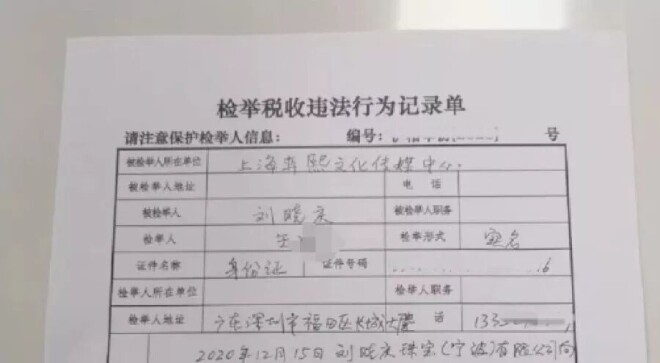 检举税收违法行为记录单
请注意保护检举人信息： 编号： 号
被检举人所在单位 上海 熙文化传媒中心
被检举人地址 电 话
被检举人 刘晓庆 被检举人职务
检举人 检举形式 实名
证件名称 身份证 证件号码 16
检举人所在单位 检举人职务
检举人地址 广东深圳市福田区长城大厦 话 133
2020年12月15日刘晓庆珠宝(宁波)有限公司向